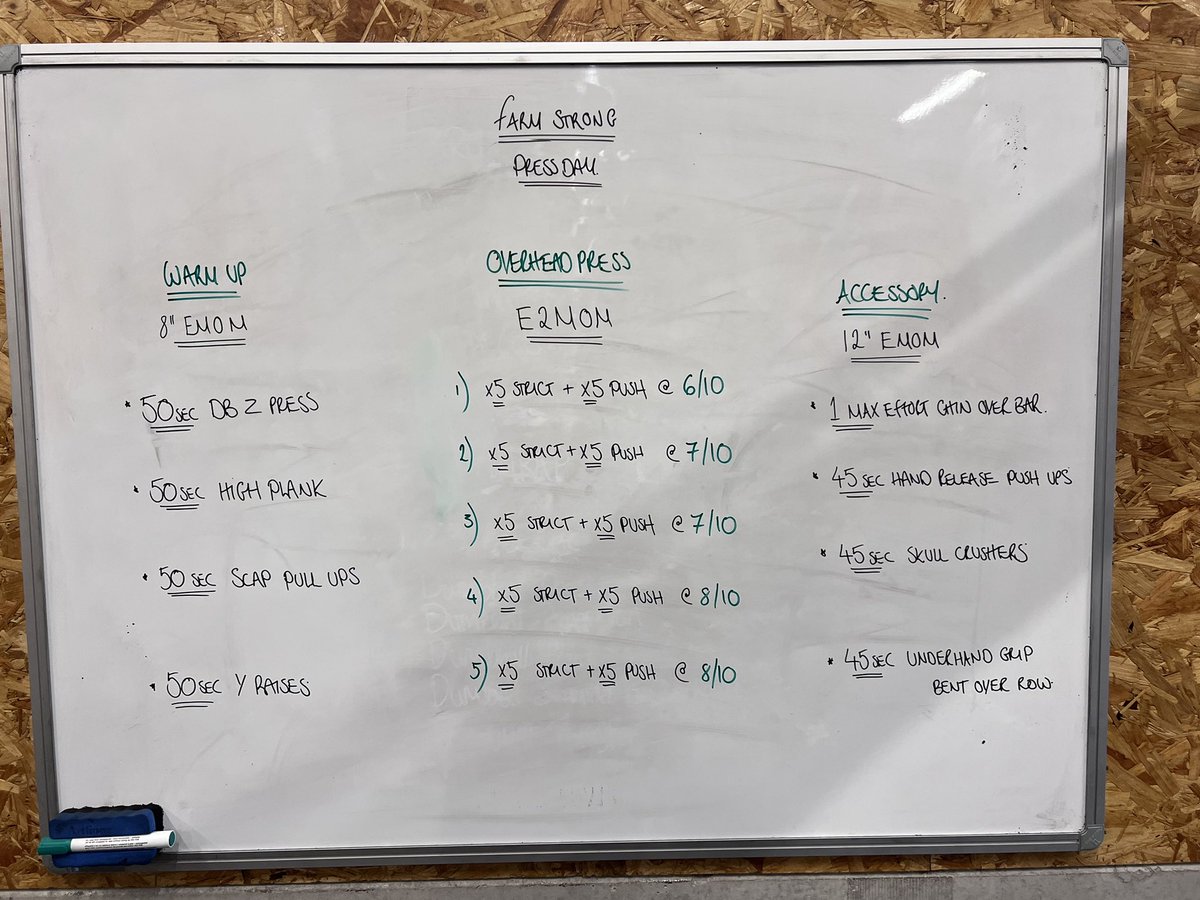 FARM STRONG
PRESS DAY.
WARM UP
8" EMOM
* 50SEC DB Z PRESS
* 50SEC HIGH PLANK
* 50SEC SCAP PULL UPS
* 50SEC Y RAISES
OVERHEAD PRESS
E2MOM
1) x5 STRICT + x5 PUSH @ 6/10
2) x5 STRICT + x5 PUSH @ 7/10
3) x5 STRICT + x5 PUSH @ 7/10
4) x5 STRICT + x5 PUSH @ 8/10
5) x5 STRICT + x5 PUSH @ 8/10
ACCESSORY.
12" EMOM
* 1 MAX EFFORT CHIN OVER BAR.
* 45SEC HAND RELEASE PUSH UPS
* 45SEC SKULL CRUSHERS
* 45SEC UNDERHAND GRIP
BENT OVER ROW.